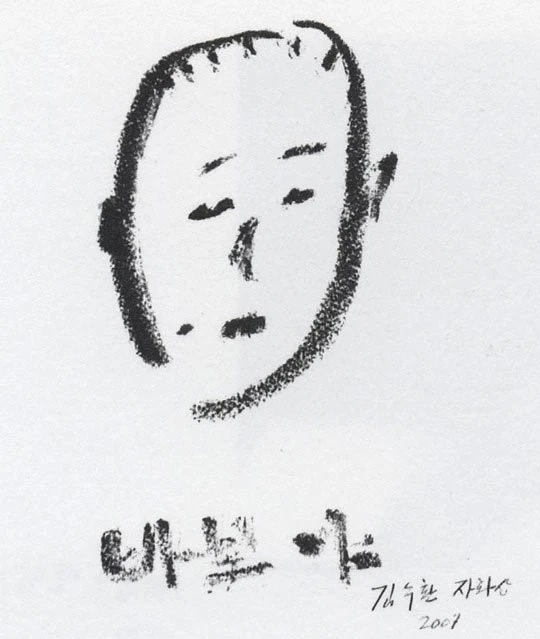 바보야
김수환 자화상
2007